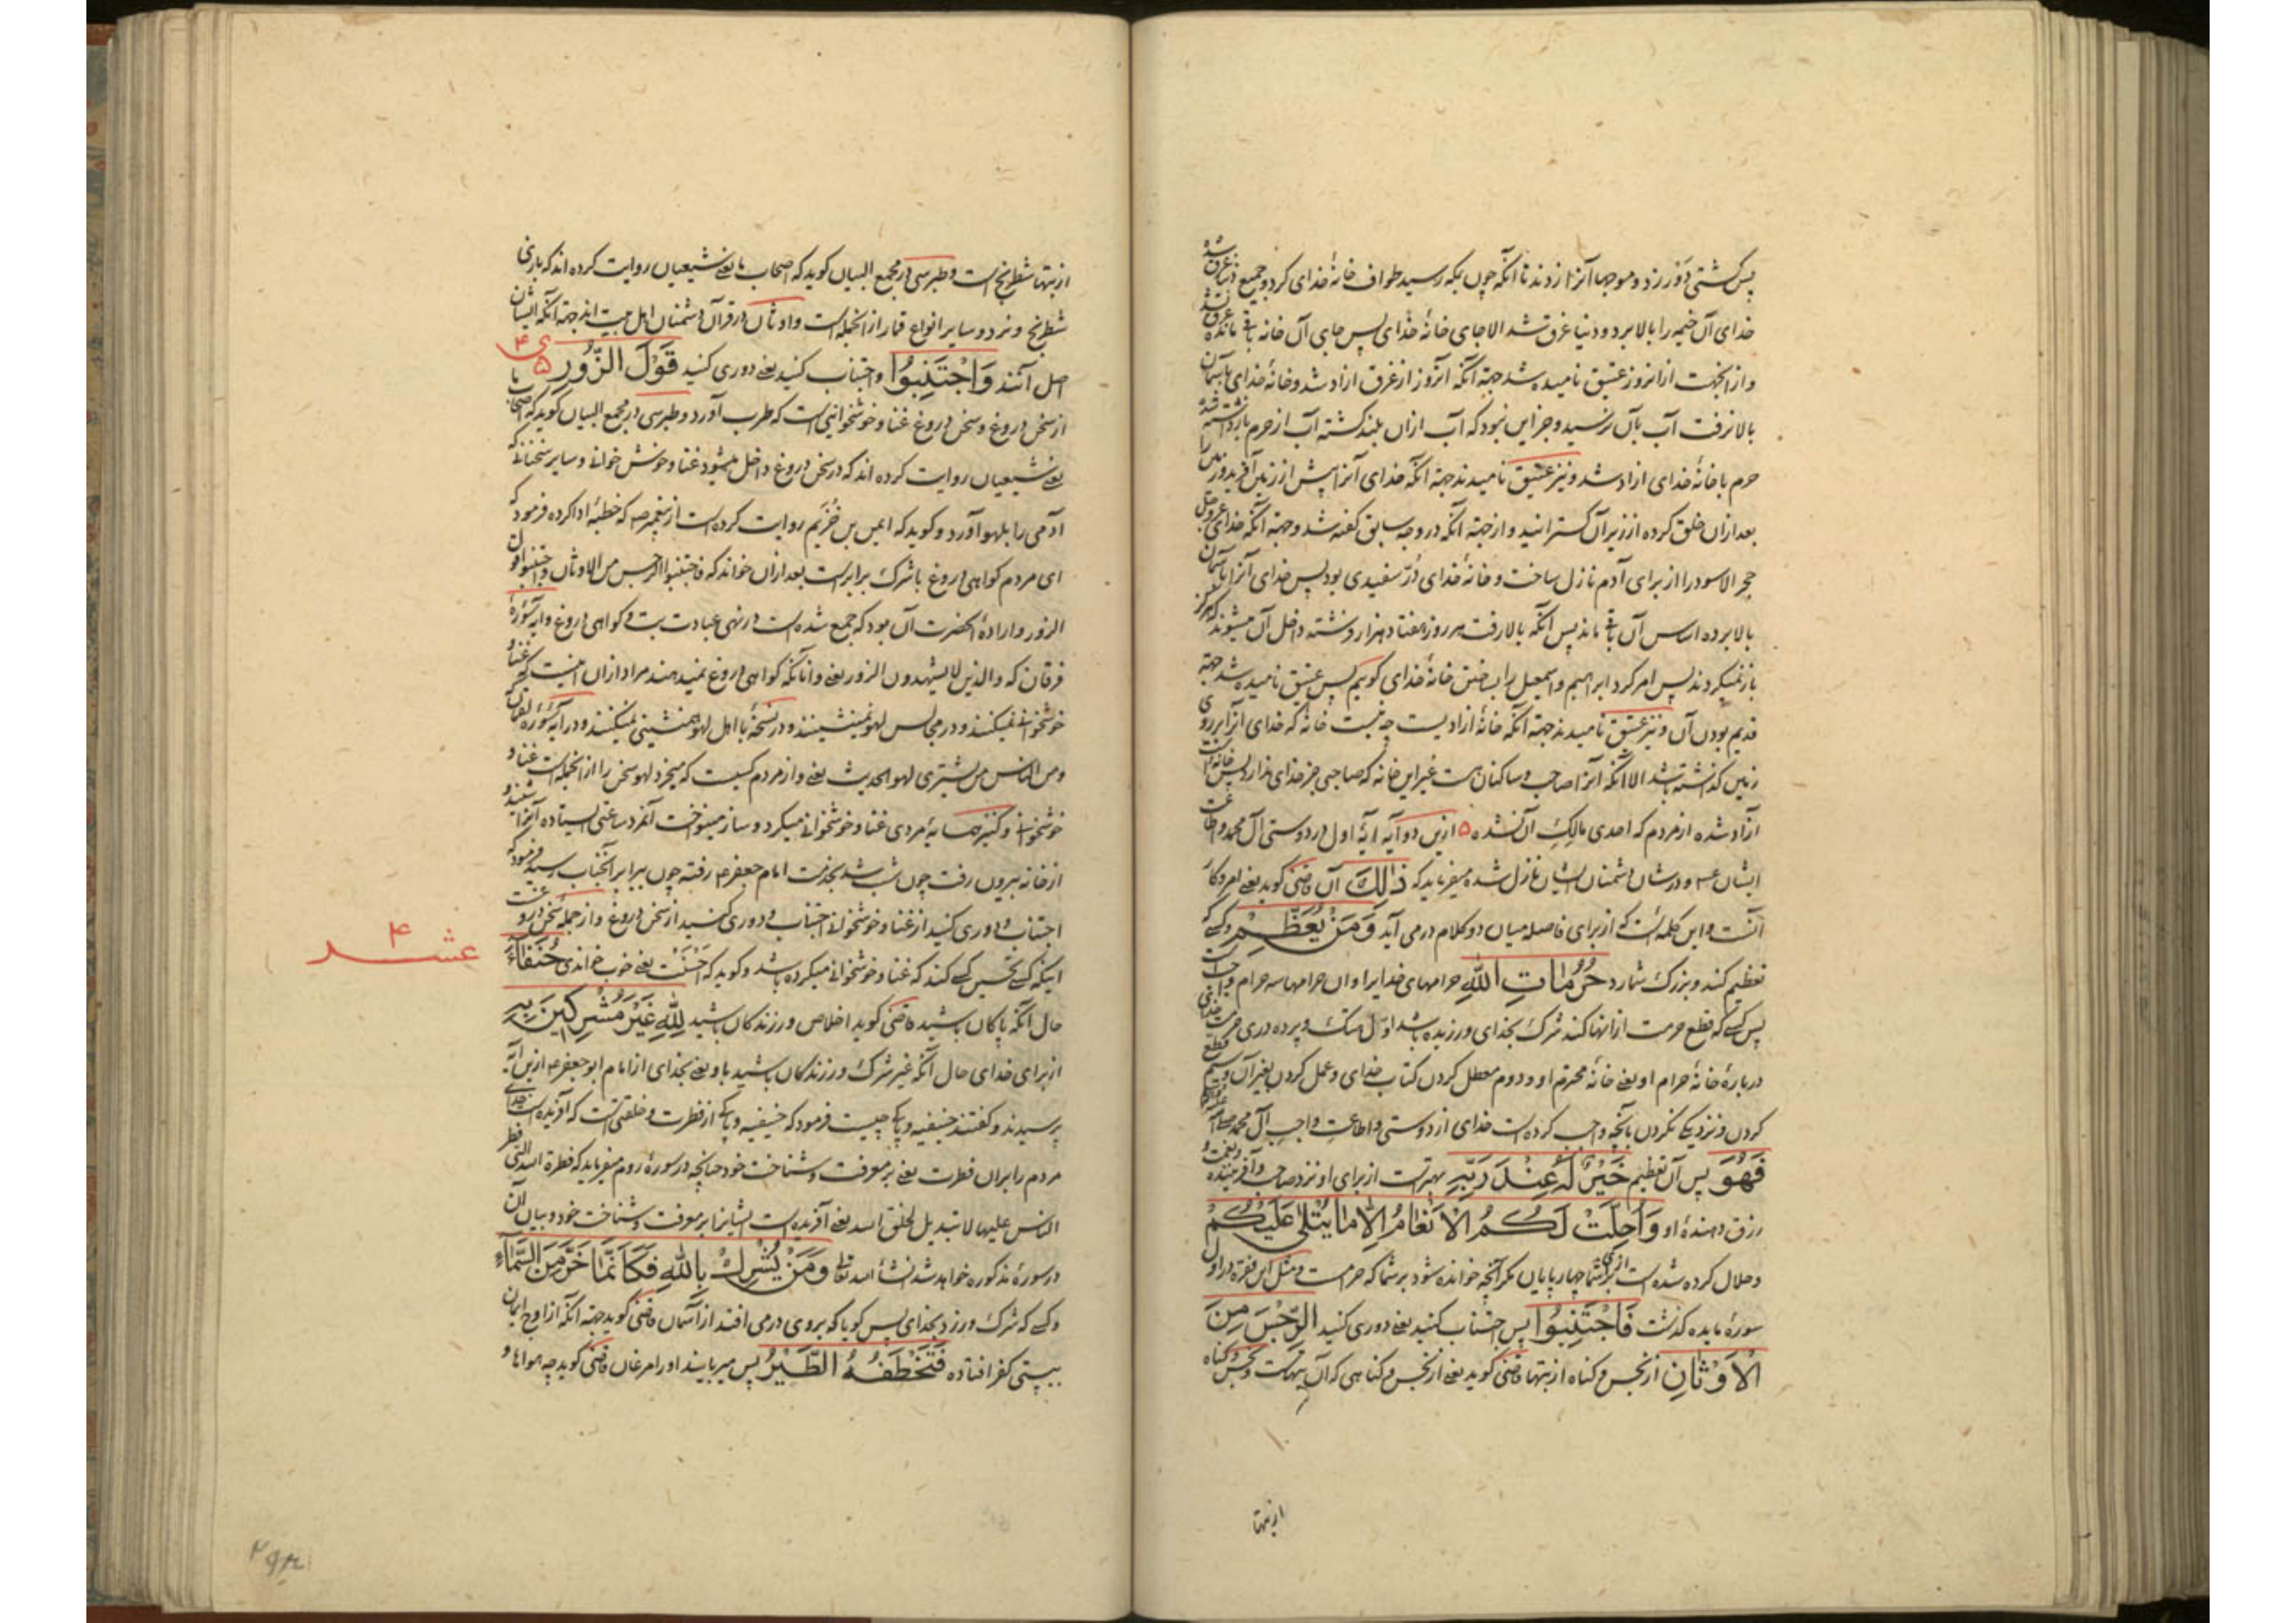 پس کشتی دور زد و موجها آنرا زدند تا آنکه چون بمکه رسید طواف خانهٔ خدای کرد و جمیع دنیا غرق شد
خدای آن خیمه را بالا برد و دنیا غرق شد الا جای خانهٔ خدای پس جای آن خانه باقی مانده غرق نشد
و از انجهت از انروز عتیق نامیده شد جهة آنکه آنروز از غرق ازاد شد و خانهٔ خدای باسمان
بالا نرفت آب بآن نرسید و جز این نبود که آب ازان بلند کشته آب از حرم بازداشته شد
حرم با خانهٔ خدای ازاد شد و نیز عتیق نامیدند جهة آنکه خدای آنرا پیش از زمین آفرید و زمین را
بعد ازان خلق کرده از زیر آن کسترانید و از جهة آنکه در وجه سابق کفته شد و جهة آنکه خدای عزوجل
حجر الاسود را از برای آدم نازل ساخت و خانهٔ خدای دُرّ سفیدی بود پس خدای آنرا بآسمان
بالا برده اساس آن باقی ماند پس آنکه بالا رفت هر روز هفتاد هزار فرشته داخل آن میشوند که هرکز
باز نمیکردند پس امر کرد ابراهیم و اسمعیل را بساختن خانهٔ خدای کویم پس عتیق نامیده شد جهة
قدیم بودن آن و نیز عتیق نامیدند جهة آنکه خانهٔ ازادیست چه نیست خانهٔ که خدای آنرا بر روی
زمین کذاشته باشد الا آنکه آنرا صاحب و ساکنان هست غیر این خانه که صاحبی جز خدای ندارد پس خانه است
آزاد شده از مردم که احدی مالک آن نشده ۵ ازین دو آیه آیهٔ اول در دوستی آل محمد و اطاعت
ایشان ع و در شان دشمنان ایشان نازل شده میفرماید که ذٰلِكَ آن قاضی کوید یعنی امر و کار
آنست و این کلمه است که از برای فاصله میان دو کلام درمی آید وَمَنْ يُعَظِّمْ و کسی که
تعظیم کند و بزرک شمارد حُرُمَاتِ اللّٰهِ حرامهای خدایرا و ان حرامها سه حرام واجب است
پس کسی که قطع حرمت از انها کند شرک بخدای ورزیده باشد اول هتک و پرده دری حرمت خدای
دربارهٔ خانهٔ حرام او یعنی خانهٔ محترم او و دوم معطل کردن کتاب خدای و عمل کردن بغیر آن و سیم قطع
کردن و نزدیکی نکردن بآنچه واجب کرده است خدای از دوستی و اطاعت واجب آل محمد
فَهُوَ پس آن تعظیم خَيْرٌ لَهُ عِنْدَ رَبِّهِ بهترست از برای او نزد صاحب و آفریننده و نعمت و
رزق دهندهٔ او وَاُحِلَّتْ لَكُمُ الْاَنْعَامُ اِلَّا مَا يُتْلٰى عَلَيْكُمْ
و حلال کرده شده است از برای شما چهارپایان مکر آنچه خوانده شود بر شما که حرمست و مثل این فقره در اول
سورهٔ مایده کذشت فَاجْتَنِبُوا پس اجتناب کنید یعنی دوری کنید الرِّجْسَ مِنَ
الْاَوْثَانِ از نجس و کناه از بتها قاضی کوید یعنی از نجس و کناهی که آن بتهاست و نجس و کناه
از بتها
از بتها شطرنج است و طبرسی در مجمع البیان کوید که اصحاب ما یعنی شیعیان روایت کرده اند که بازی
شطرنج و نرد و سایر انواع قمار از انجمله است و اوثان در قرآن دشمنان اهل بیت اند جهة آنکه ایشان
اصل آنند وَاجْتَنِبُوا و اجتناب کنید یعنی دوری کنید قَوْلَ الزُّورِ ۵ ی ۴
از سخن دروغ و سخن دروغ غنا و خوشخوانیی است که طرب آورد و طبرسی در مجمع البیان کوید که اصحاب ما
یعنی شیعیان روایت کرده اند که در سخن دروغ داخل میشود غنا و خوش خوانی و سایر سخنانی که
آدمی را بلهو آورد و کوید که ایمن بن خُزَیم روایت کرده است از پیغمبر ص که خطبهٔ ادا کرده فرمود که
ای مردم کواهی دروغ با شرک برابر است بعد ازان خواند که فاجتنبوا الرجس من الاوثان واجتنبوا قول
الزور و ارادهٔ انحضرت آن بود که جمع شده است در نهی عبادت بت و کواهی دروغ و ایهٔ سورهٔ
فرقان که والذین لا یشهدون الزور یعنی و انانکه کواهی دروغ نمیدهند مراد ازان اینست که غنا و
خوشخوانی نمیکنند و در مجالس لهو نمینشینند و در نسخهٔ با اهل لهو همنشینی نمیکنند و در آیهٔ سورهٔ لقمان
ومن الناس من یشتری لهو الحدیث یعنی و از مردم کسیست که میخرد لهو سخن را از انجمله است غنا و
خوشخوانی و کنیز همسایهٔ مردی غنا و خوشخوانی میکرد و ساز مینواخت آنمرد ساعتی ایستاده آنرا شنید و
از خانه بیرون رفت چون شب شد بخدمت امام جعفر ع رفته چون برابر آنجناب رسید فرمود که
اجتناب و دوری کنید از غنا و خوشخوانی اجتناب و دوری کنید از سخن دروغ و از جملهٔ سخن دروغست
اینکه کسی تحسین کسی کند که غنا و خوشخوانی میکرده باشد و کوید که اَحْسَنْتَ یعنی خوب خواندی حُنَفَاءَ
عشر ۴
حال آنکه پاکان باشید قاضی کوید اخلاص ورزندکان باشید لِلّٰهِ غَيْرَ مُشْرِكِينَ بِهِ
از برای خدای حال آنکه غیر شرک ورزندکان باشید باو یعنی بخدای از امام ابو جعفر ع ازین آیه
پرسیدند و کفتند حنیفیه و پاکی چیست فرمود که حنیفیه و پاکی از فطرت و خلقتی است که آفریده است خدای
مردم را بران فطرت یعنی بر معرفت و شناخت خود چنانچه در سورهٔ روم میفرماید که فطرة الله التی فطر
الناس علیها لا تبدیل لخلق الله یعنی آفریده است ایشانرا بر معرفت و شناخت خود و بیان آن
در سورهٔ مذکوره خواهد شد انشأ الله تعالی وَمَنْ يُشْرِكْ بِاللّٰهِ فَكَاَنَّمَا خَرَّ مِنَ السَّمَاءِ
و کسی که شرک ورزد بخدای پس کویا که بروی درمی افتد از آسمان قاضی کوید جهة آنکه از اوج ایمان
بپستی کفر افتاده فَتَخْطَفُهُ الطَّيْرُ پس میربایند او را مرغان قاضی کوید چه هواها و
۲۹۳